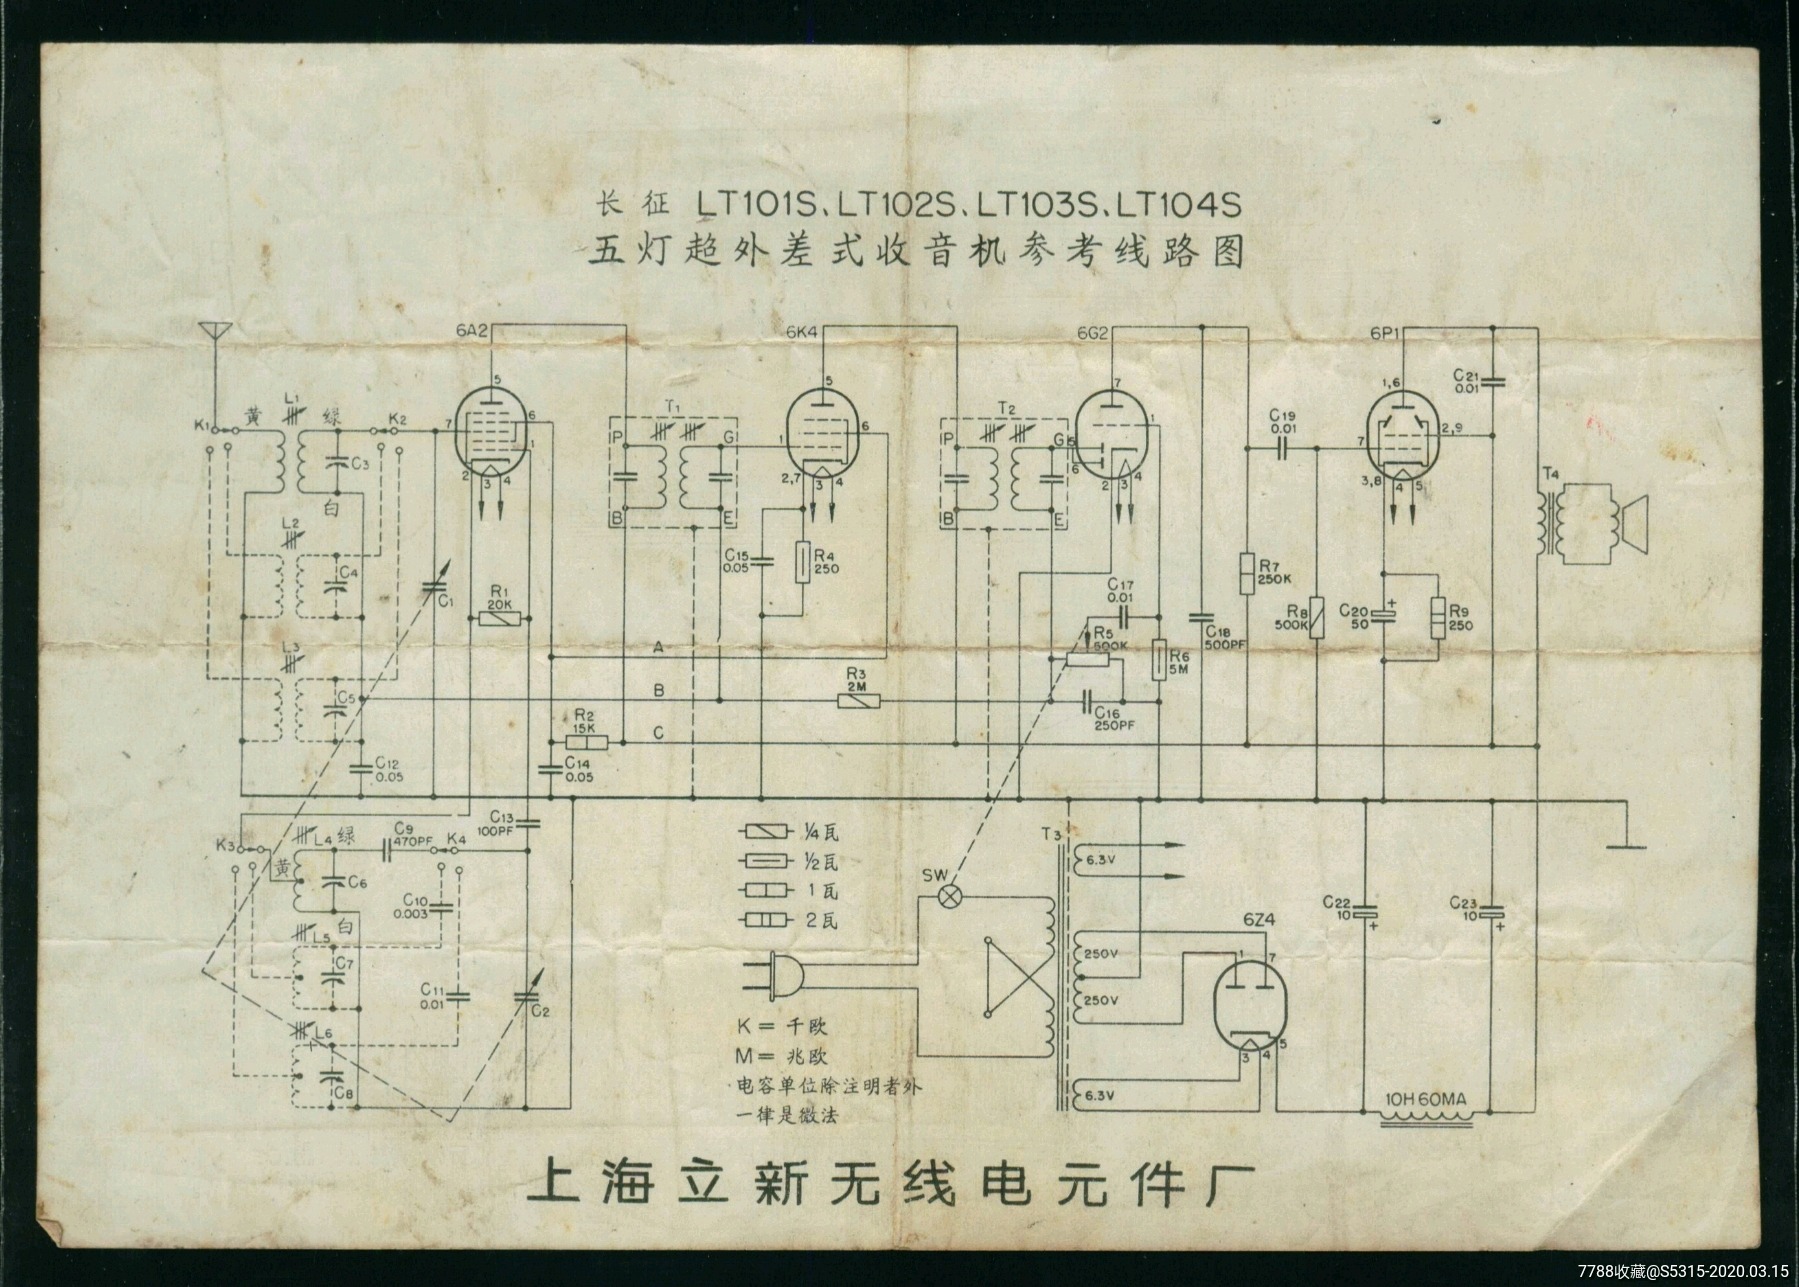 长征 LT101S、LT102S、LT103S、LT104S
五灯超外差式收音机参考线路图
6A2
6K4
6G2
6P1
5
5
7
1,6
C21
0.01
K1
黄
L1
绿
K2
7
6
1
T1
P
G
1
6
T2
P
G
5
6
1
C19
0.01
7
2,9
C3
白
2
3
4
2,7
3
4
2
3
4
3,8
4
5
T4
B
E
B
E
L2
C4
C1
R1
20K
C15
0.05
R4
250
C17
0.01
R7
250K
R8
500K
C20
50
+
R9
250
L3
C5
A
R5
500K
R6
5M
C18
500PF
B
R3
2M
C16
250PF
R2
15K
C
C12
0.05
C14
0.05
K3
L4
绿
黄
C9
470PF
K4
C13
100PF
¼瓦
½瓦
1瓦
2瓦
T3
6.3V
SW
C6
白
C10
0.003
C22
10
+
C23
10
+
6Z4
L5
C7
C11
0.01
C2
250V
250V
1
7
L6
C8
K= 千欧
M= 兆欧
电容单位除注明者外
一律是微法
3
4
5
6.3V
10H 60MA
上海立新无线电元件厂
7788收藏@S5315-2020.03.15